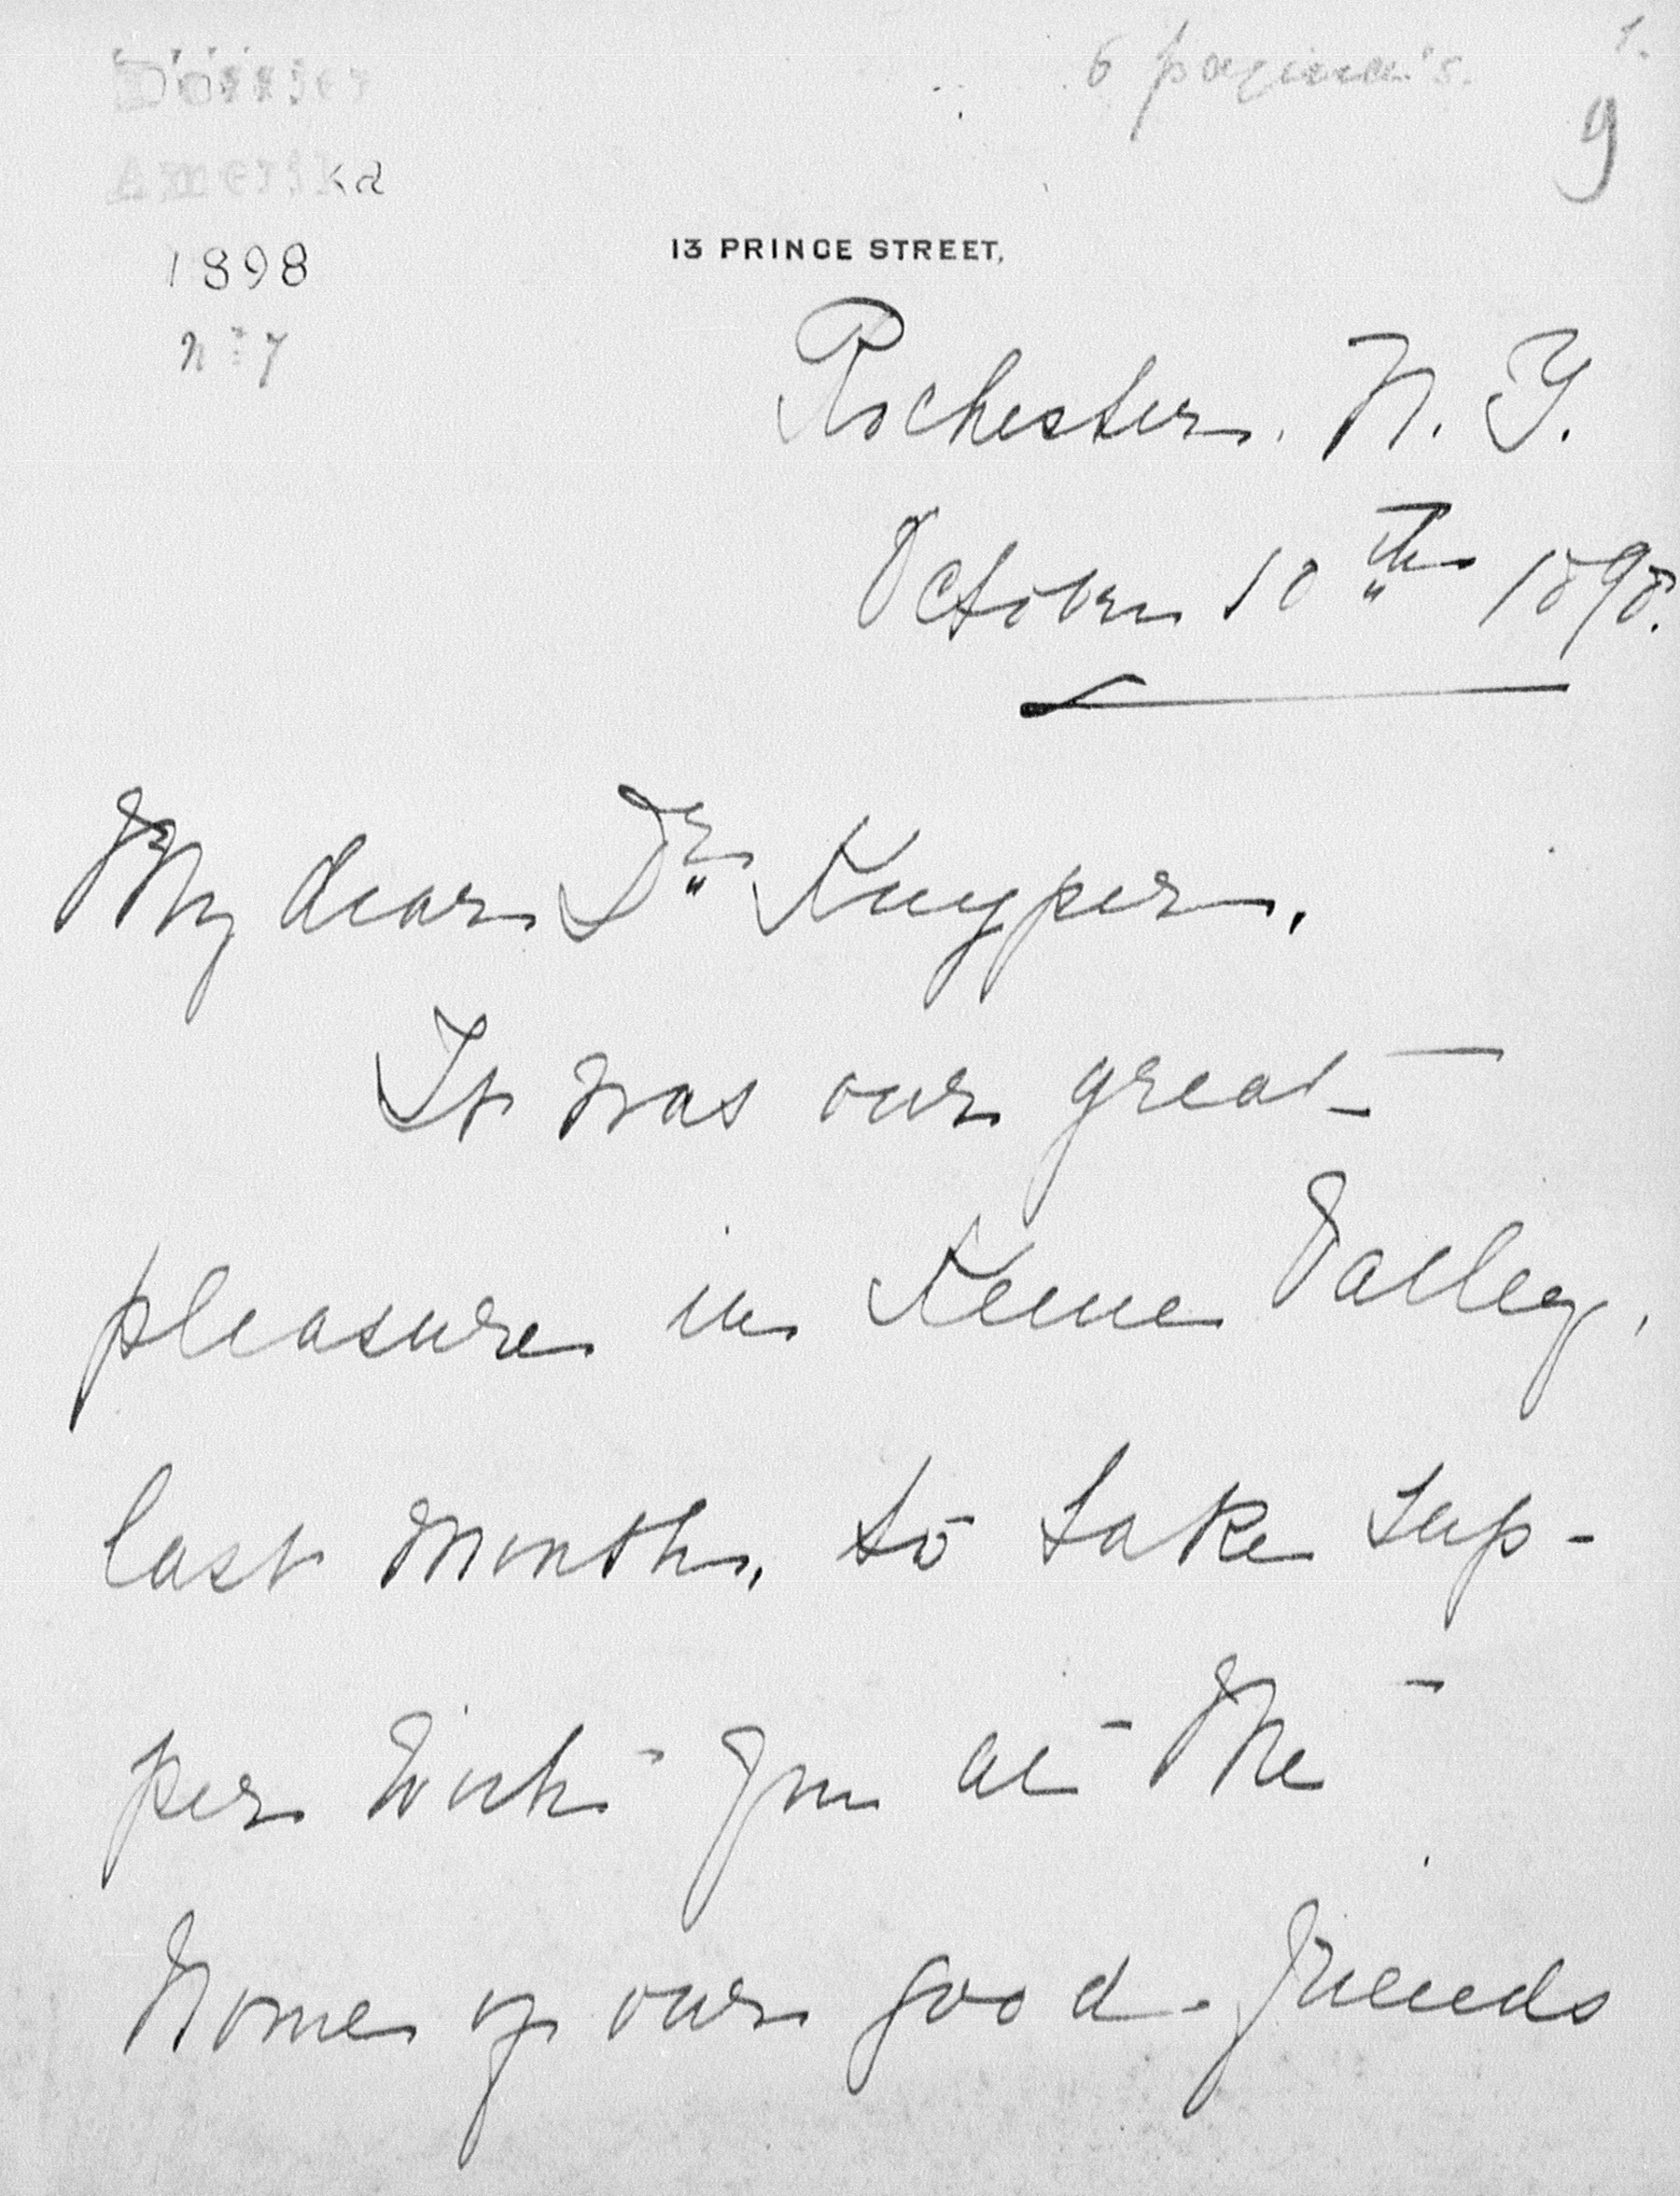 Dossier
Amerika
1898
nº 7
6 pagina's.
1.
9
13 PRINCE STREET,
Rochester. N. Y.
October 10th 1898.
My dear Dr Kuyper.
It was our great
pleasure in Keene Valley,
last month, to take sup-
per with you at the
home of our good friends